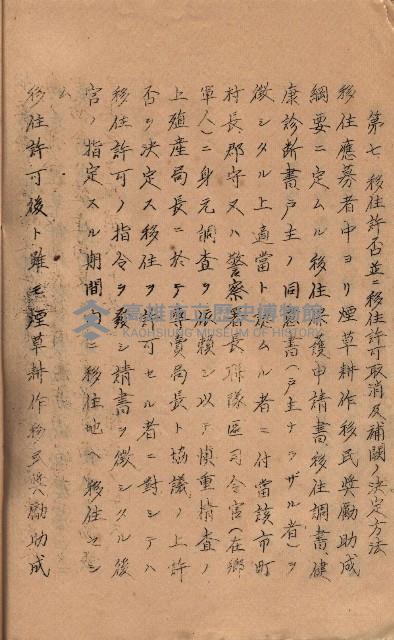 第七 移住許否並ニ移住許可取消及補闕ノ決定方法
移住應募者中ヨリ煙草耕作移民奬勵助成
綱要ニ定ムル移住保護申請書、移住調書、健
康診斷書、戸主ノ同意書(戸主ナラザル者)ヲ
徴シタル上適當ト認ムル者ニ付當該市町
村長郡守又ハ警察署長聯隊區司令官(在鄉
軍人)ニ身元調査ヲ依賴シ以テ愼重精査ノ
上殖產局長ニ於テ專賣局長ト協議ノ上許
否ヲ決定ス移住ヲ許可セル者ニ對シテハ
移住許可ノ指令ヲ發シ請書ヲ徴シタル後
官ノ指定スル期間内ニ移住地ヘ移住セシ
ム
移住許可後ト雖モ煙草耕作移民奬勵助成
高雄市立歷史博物館
KAOHSIUNG MUSEUM OF HISTORY